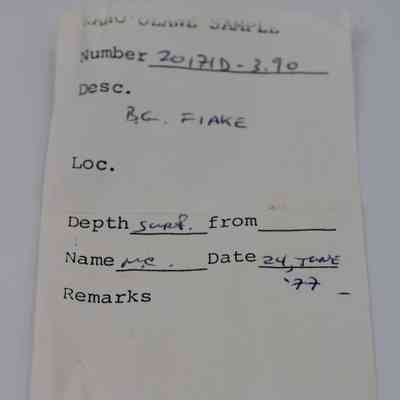 SAMPLE
Number 20171D-3.90
Desc.
B.G. FLAKE
Loc.
Depth SURF. from
Name M.C. Date 24, JUNE
'77
Remarks